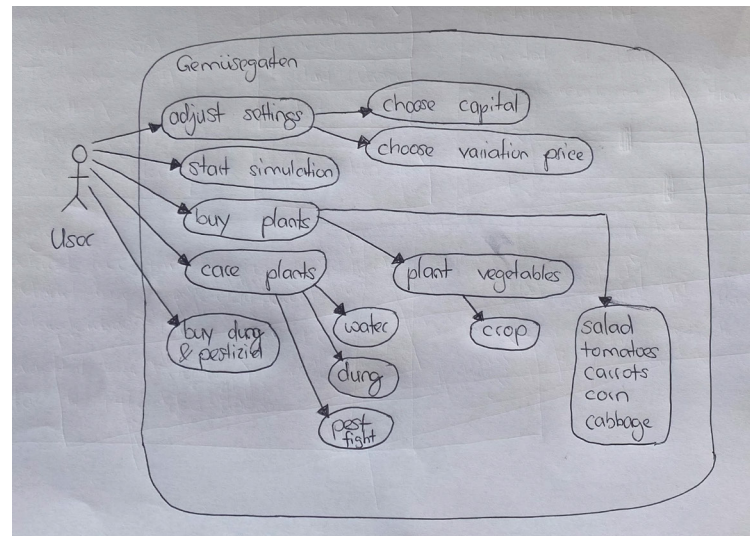 Gemüsegarten
adjust settings
choose capital
choose variation price
start simulation
User
buy plants
care plants
plant vegetables
buy dung
& pestizid
water
crop
dung
pest
fight
salad
tomatoes
carrots
corn
cabbage